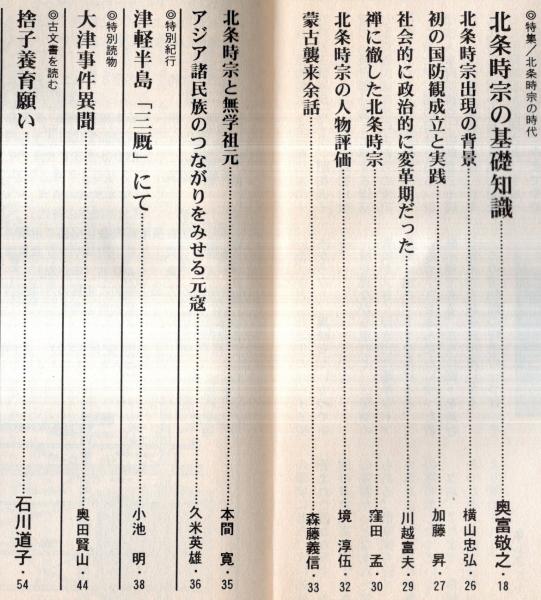 ◎特集／北条時宗の時代
北条時宗の基礎知識……奥富敬之・18
北条時宗出現の背景……横山忠弘・26
初の国防観成立と実践……加藤 昇・27
社会的に政治的に変革期だった……川越富夫・29
禅に徹した北条時宗……窪田 孟・30
北条時宗の人物評価……境 淳伍・32
蒙古襲来余話……森藤義信・33
北条時宗と無学祖元……本間 寛・35
アジア諸民族のつながりをみせる元寇……久米英雄・36
◎特別紀行
津軽半島「三厩」にて……小池 明・38
◎特別読物
大津事件異聞……奥田賢山・44
◎古文書を読む
捨子養育願い……石川道子・54